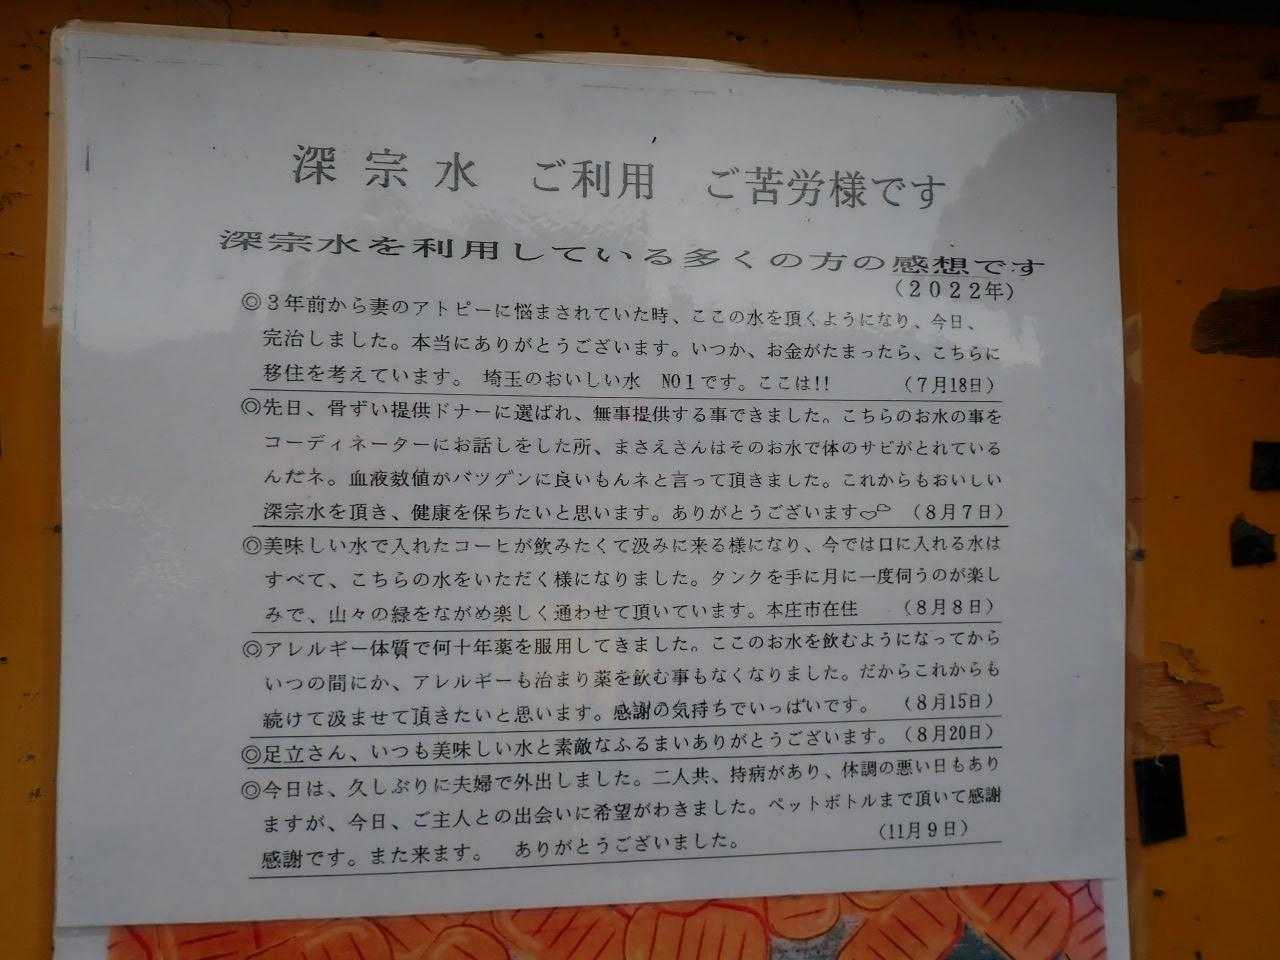 深宗水　ご利用　ご苦労様です
深宗水を利用している多くの方の感想です
（２０２２年）
◎３年前から妻のアトピーに悩まされていた時、ここの水を頂くようになり、今日、
完治しました。本当にありがとうございます。いつか、お金がたまったら、こちらに
移住を考えています。　埼玉のおいしい水　NO１です。ここは!!　（７月18日）
◎先日、骨ずい提供ドナーに選ばれ、無事提供する事できました。こちらのお水の事を
コーディネーターにお話しをした所、まさえさんはそのお水で体のサビがとれている
んだネ。血液数値がバツグンに良いもんネと言って頂きました。これからもおいしい
深宗水を頂き、健康を保ちたいと思います。ありがとうございます　（８月７日）
◎美味しい水で入れたコーヒが飲みたくて汲みに来る様になり、今では口に入れる水は
すべて、こちらの水をいただく様になりました。タンクを手に月に一度伺うのが楽し
みで、山々の緑をながめ楽しく通わせて頂いています。本庄市在住　（８月８日）
◎アレルギー体質で何十年薬を服用してきました。ここのお水を飲むようになってから
いつの間にか、アレルギーも治まり薬を飲む事もなくなりました。だからこれからも
続けて汲ませて頂きたいと思います。感謝の気持ちでいっぱいです。　（８月15日）
◎足立さん、いつも美味しい水と素敵なふるまいありがとうございます。（８月20日）
◎今日は、久しぶりに夫婦で外出しました。二人共、持病があり、体調の悪い日もあり
ますが、今日、ご主人との出会いに希望がわきました。ペットボトルまで頂いて感謝
感謝です。また来ます。　ありがとうございました。　（11月９日）